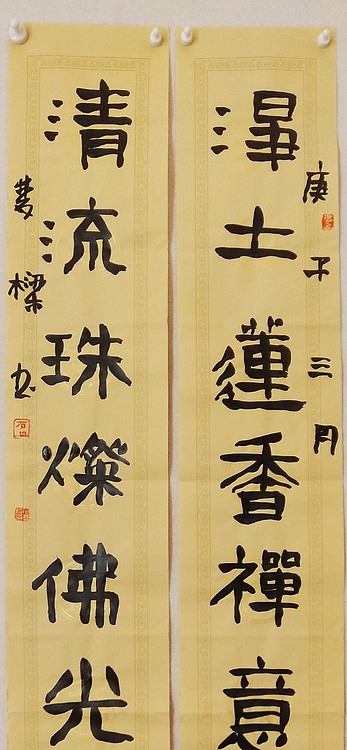 庚子三月
淨土蓮香禪意
清流珠燦佛光
樑书